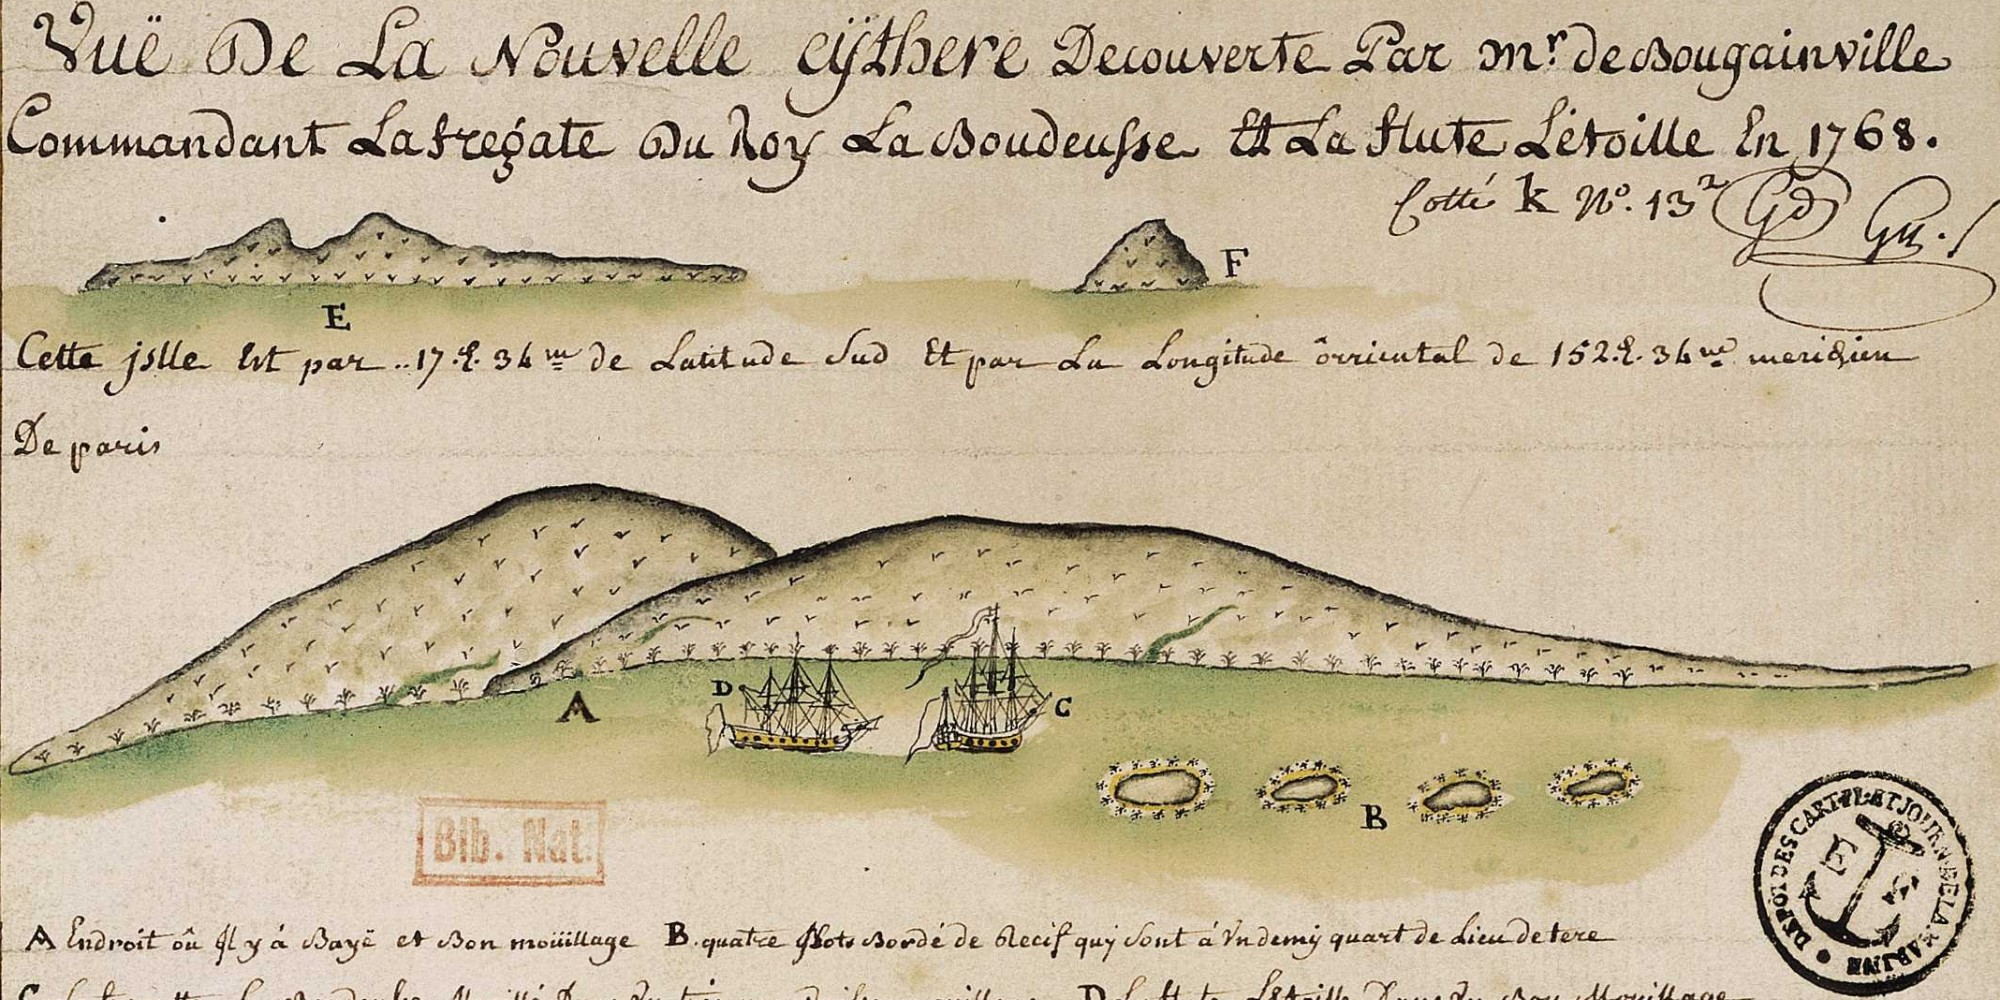 Vuë De La Nouvelle cÿthere Decouverte Par mr. de Bougainville
Commandant La fregate Du Roy La Boudeusse Et La flute Létoille En 1768.
Cotté K No. 13
E
F
Cette jslle Est par .. 17.d. 34 m de Latitude Sud Et par La Longitude ôrriental de 152.d. 34 m meridien
De paris
A
D
C
B
Bib. Nat.
DEPOT DES CART. PL. ET JOURN. DE LA MARINE
A Endroit où Jl y á Bayë et Bon moüillage B. quatre Jlots Bordé de Recif quj sont á Vn demÿ quart de Lieu de tere
D La flute Létoille Dans Bon Mouillage